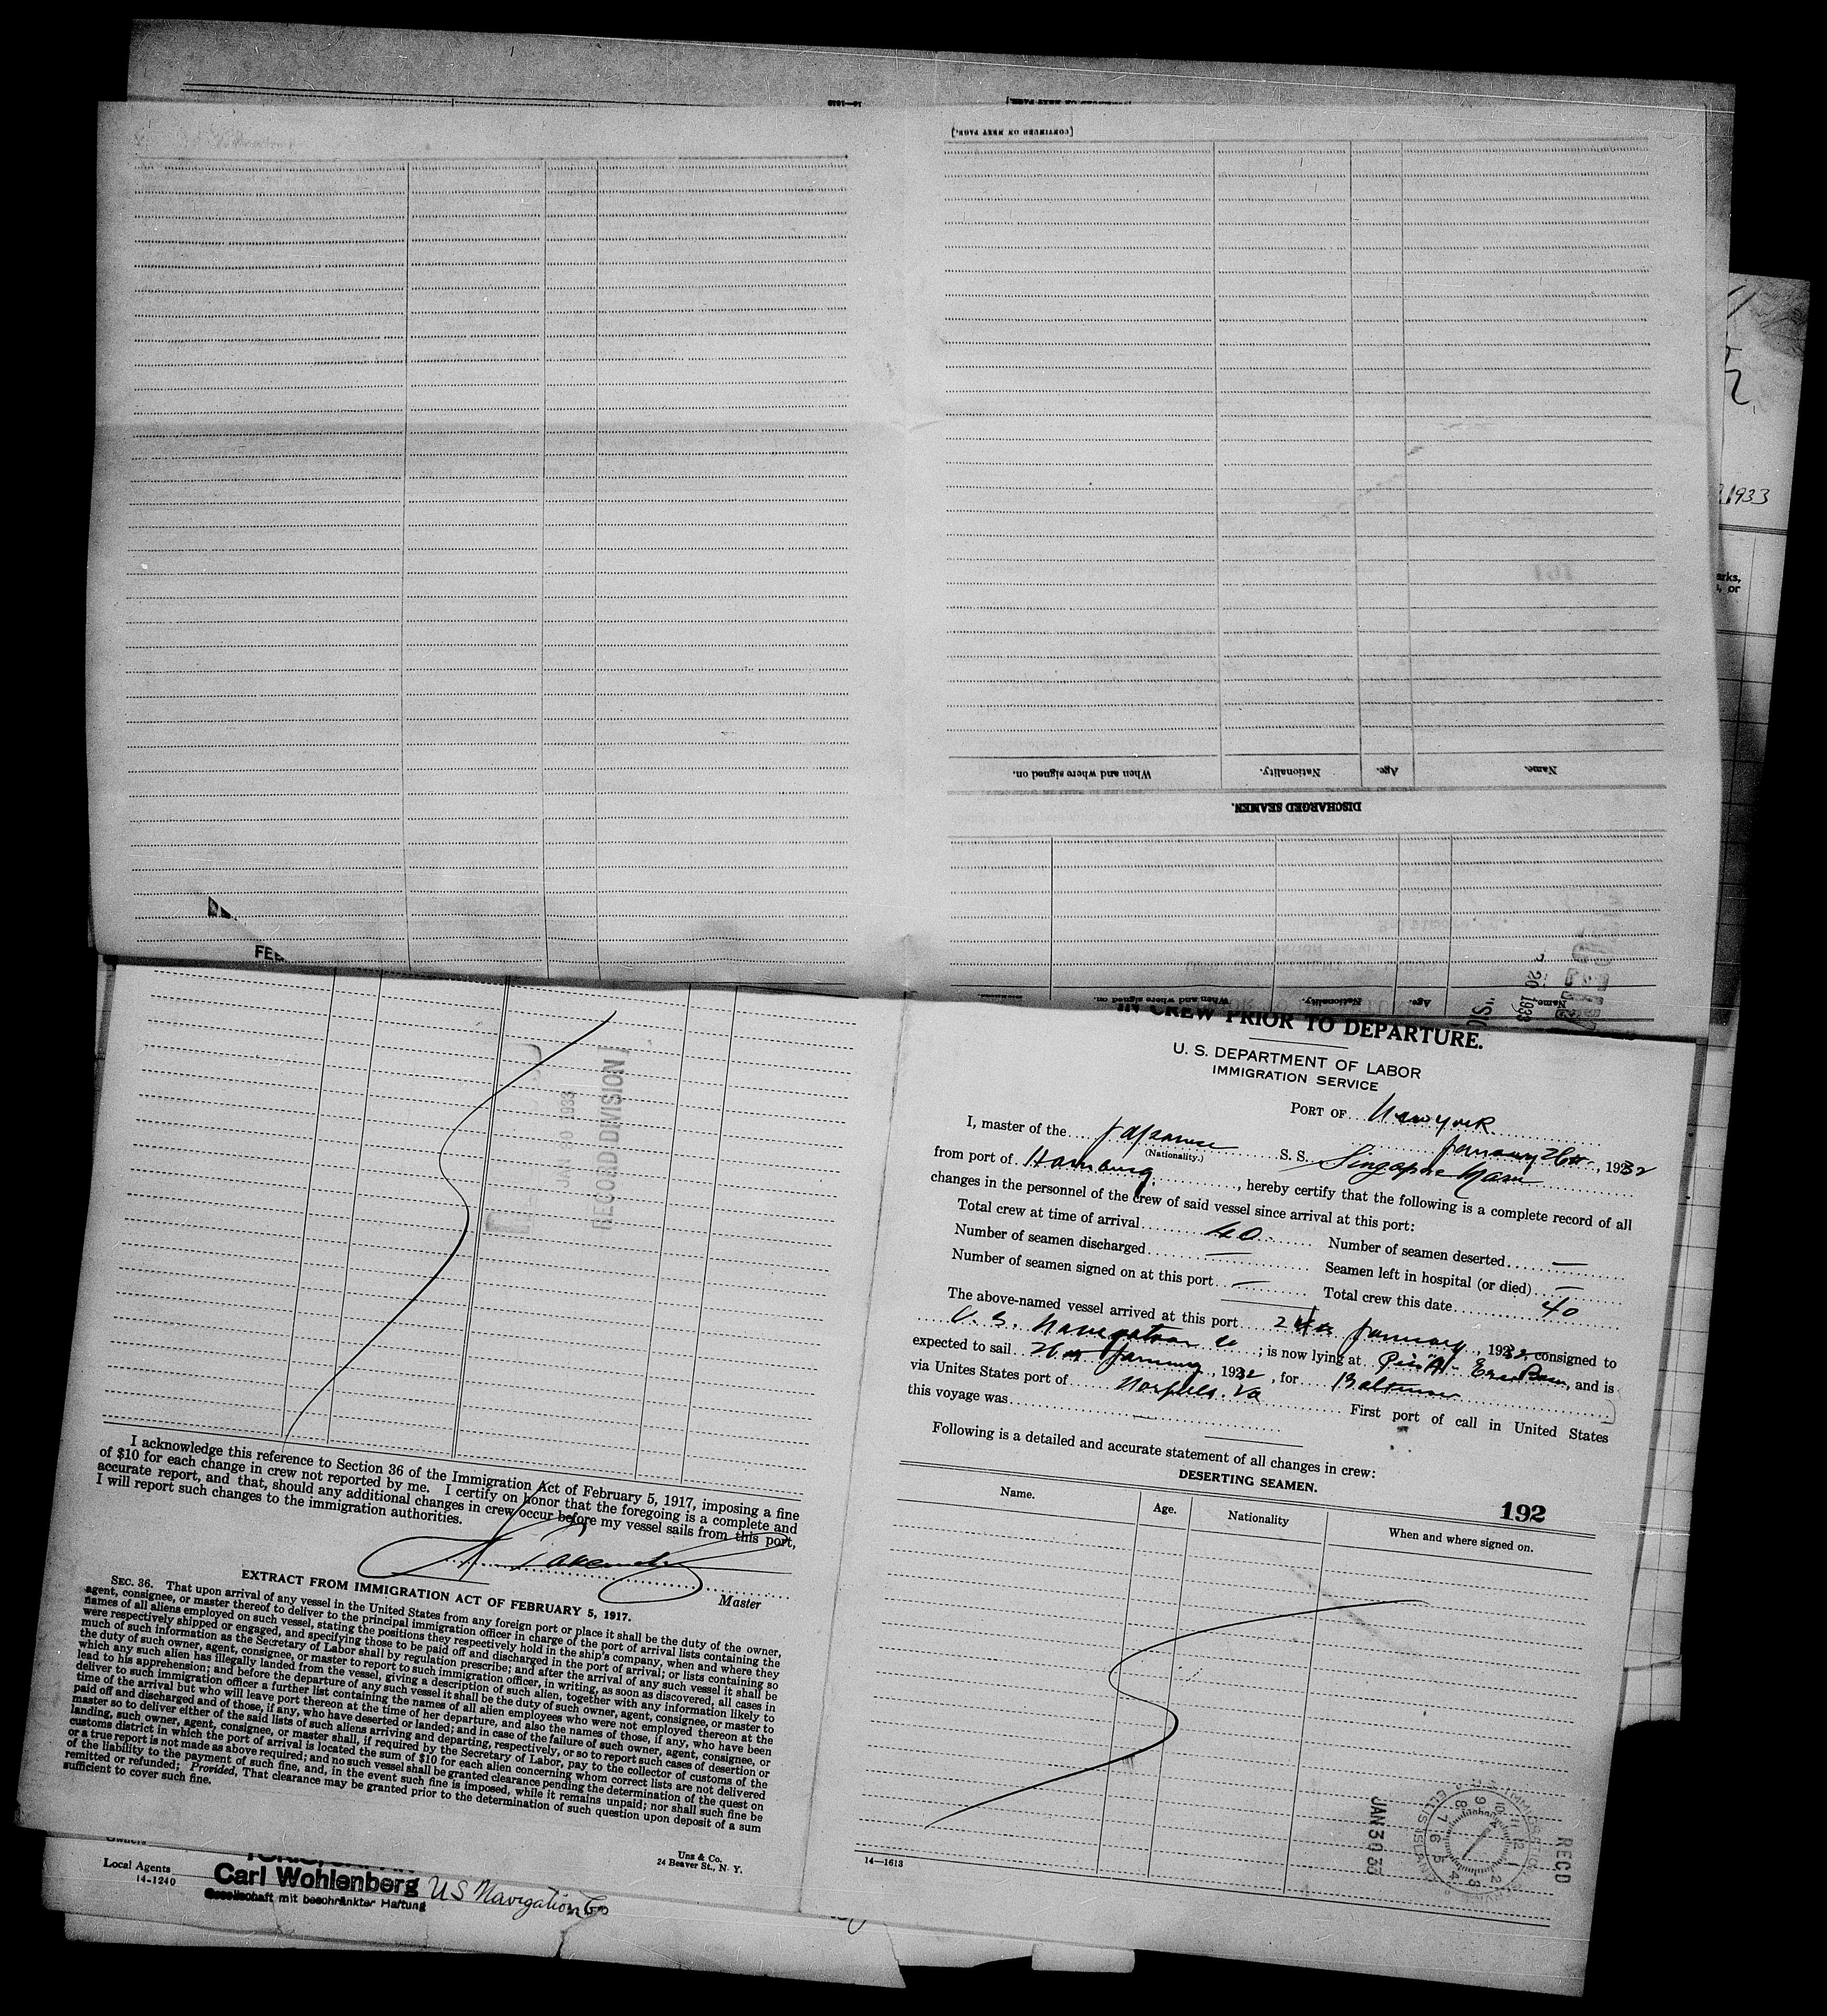 14—1613
[CONTINUED ON NEXT PAGE.]
[CONTINUED ON NEXT PAGE.]
1933
arks,
, or
When and where signed on.
Nationality.
Age.
Name.
DISCHARGED SEAMEN.
When and where signed on.
Nationality.
Age.
Name.
20 1933
FEB
JAN 30 1933
RECORD DIVISION
IN CREW PRIOR TO DEPARTURE.
U. S. DEPARTMENT OF LABOR
IMMIGRATION SERVICE
PORT OF New York
January 26th, 1932
I, master of the Japanese S. S. Singapore Maru
(Nationality.)
from port of Hamburg, hereby certify that the following is a complete record of all
changes in the personnel of the crew of said vessel since arrival at this port:
Total crew at time of arrival 40
Number of seamen deserted —
Number of seamen discharged —
Seamen left in hospital (or died) —
Number of seamen signed on at this port —
Total crew this date 40
The above-named vessel arrived at this port 24th January, 1932, consigned to
U. S. Navigation Co ; is now lying at Pier "A" Erie Basin, and is
expected to sail 26th January, 1932, for Baltimore
via Unites States port of Norfolk. Va First port of call in United States
this voyage was —
Following is a detailed and accurate statement of all changes in crew:
DESERTING SEAMEN.
192
Name.
Age.
Nationality
When and where signed on.
I acknowledge this reference to Section 36 of the Immigration Act of February 5, 1917, imposing a fine
of $10 for each change in crew not reported by me. I certify on honor that the foregoing is a complete and
accurate report, and that, should any additional changes in crew occur before my vessel sails from this port,
I will report such changes to the immigration authorities.
Master
EXTRACT FROM IMMIGRATION ACT OF FEBRUARY 5, 1917.
SEC. 36. That upon arrival of any vessel in the United States from any foreign port or place it shall be the duty of the owner,
agent, consignee, or master thereof to deliver to the principal immigration officer in charge of the port of arrival lists containing the
names of all aliens employed on such vessel, stating the positions they respectively hold in the ship's company, when and where they
were respectively shipped or engaged, and specifying those to be paid off and discharged in the port of arrival; or lists containing so
much of such information as the Secretary of Labor shall by regulation prescribe; and after the arrival of any such vessel it shall be
the duty of such owner, agent, consignee, or master to report to such immigration officer, in writing, as soon as discovered, all cases in
which any such alien has illegally landed from the vessel, giving a description of such alien, together with any information likely to
lead to his apprehension; and before the departure of any such vessel it shall be the duty of such owner, agent, consignee, or master to
deliver to such immigration officer a further list containing the names of all alien employees who were not employed thereon at the
time of the arrival but who will leave port thereon at the time of her departure, and also the names of those, if any, who have been
paid off and discharged and of those, if any, who have deserted or landed; and in case of the failure of such owner, agent, consignee, or
master so to deliver either of the said lists of such aliens arriving and departing, respectively, or so to report such cases of desertion or
landing, such owner, agent, consignee, or master shall, if required by the Secretary of Labor, pay to the collector of customs of the
customs district in which the port of arrival is located the sum of $10 for each alien concerning whom correct lists are not delivered
or a true report is not made as above required; and no such vessel shall be granted clearance pending the determination of the quest on
of the liability to the payment of such fine, and, in the event such fine is imposed, while it remains unpaid; nor shall such fine be
remitted or refunded; Provided, That clearance may be granted prior to the determination of such question upon deposit of a sum
sufficient to cover such fine.
Unz & Co.
24 Beaver St., N. Y.
14—1613
JAN 30 33
RECD
U.S. IMMIGRATION SERVICE
ELLIS ISLAND
Owners
Local Agents
14-1240
Carl Wohlenberg
Gesellschaft mit beschränkter Haftung
US Navigation Co